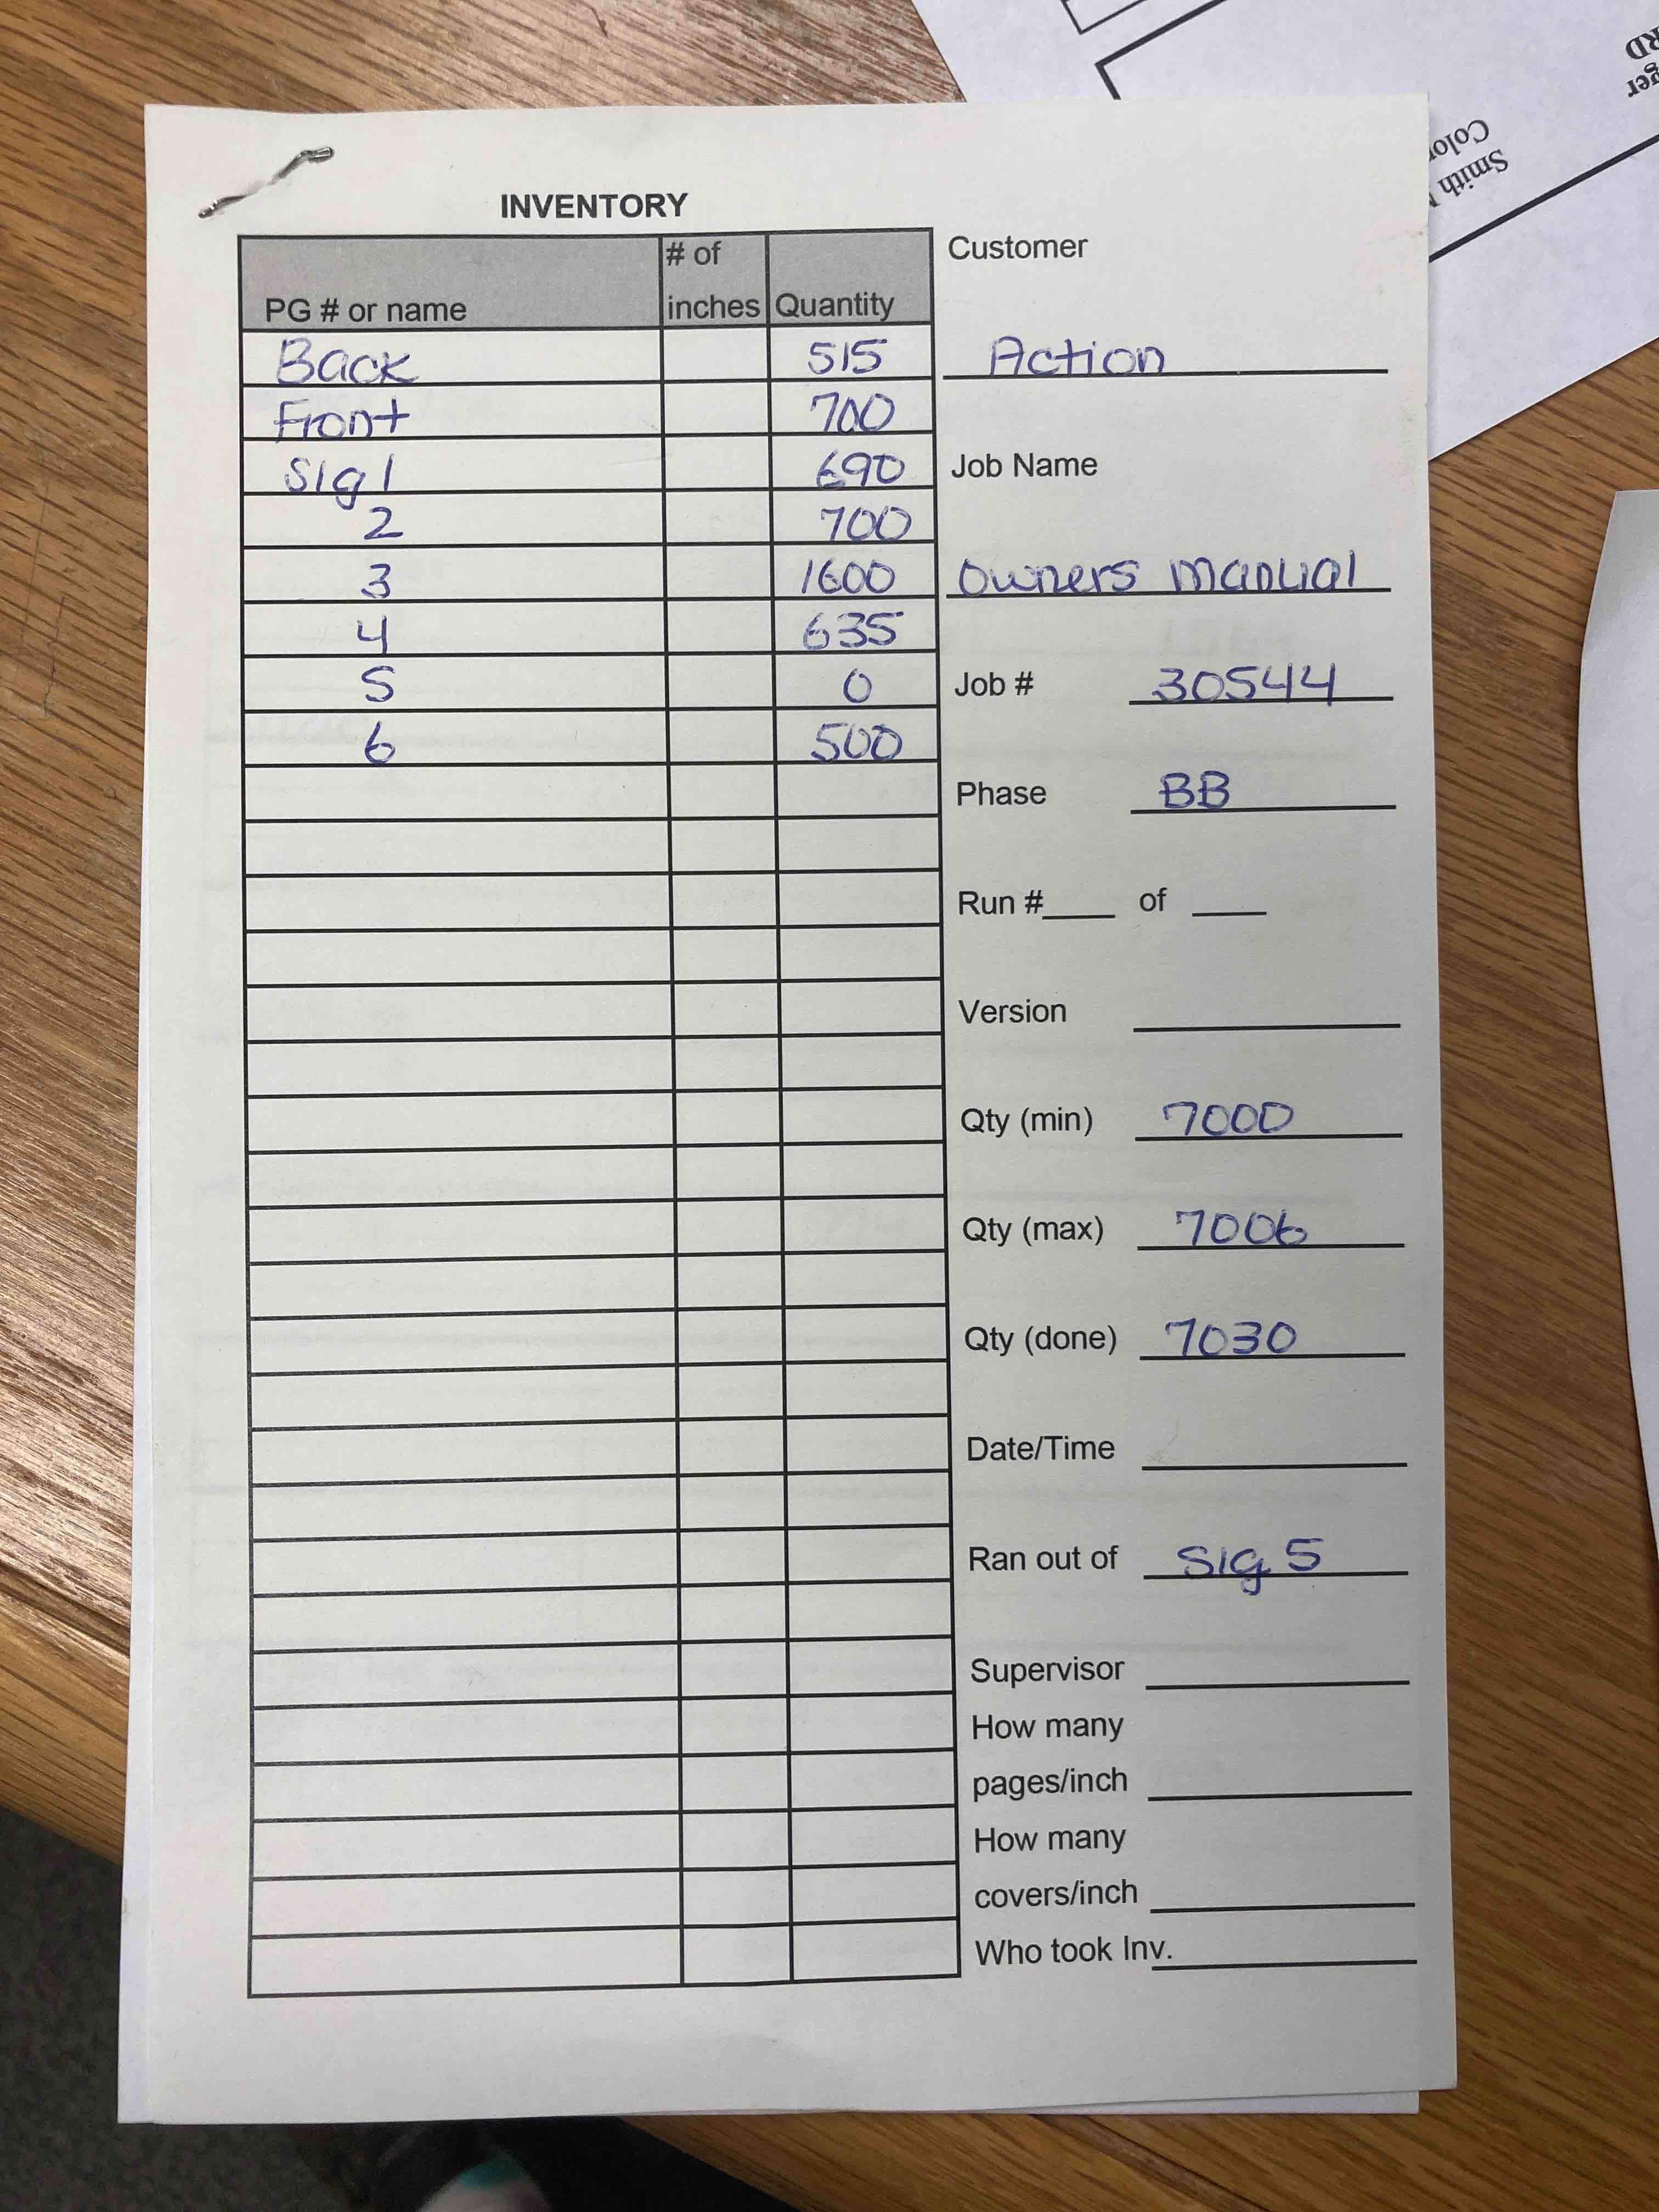 INVENTORY
PG # or name # of inches Quantity
Back 515
Front 700
Sig 1 690
2 700
3 1600
4 635
5 0
6 500
Customer
Action
Job Name
Owners Manual
Job # 30544
Phase BB
Run # of
Version
Qty (min) 7000
Qty (max) 7006
Qty (done) 7030
Date/Time
Ran out of Sig 5
Supervisor
How many
pages/inch
How many
covers/inch
Who took Inv.
Smith